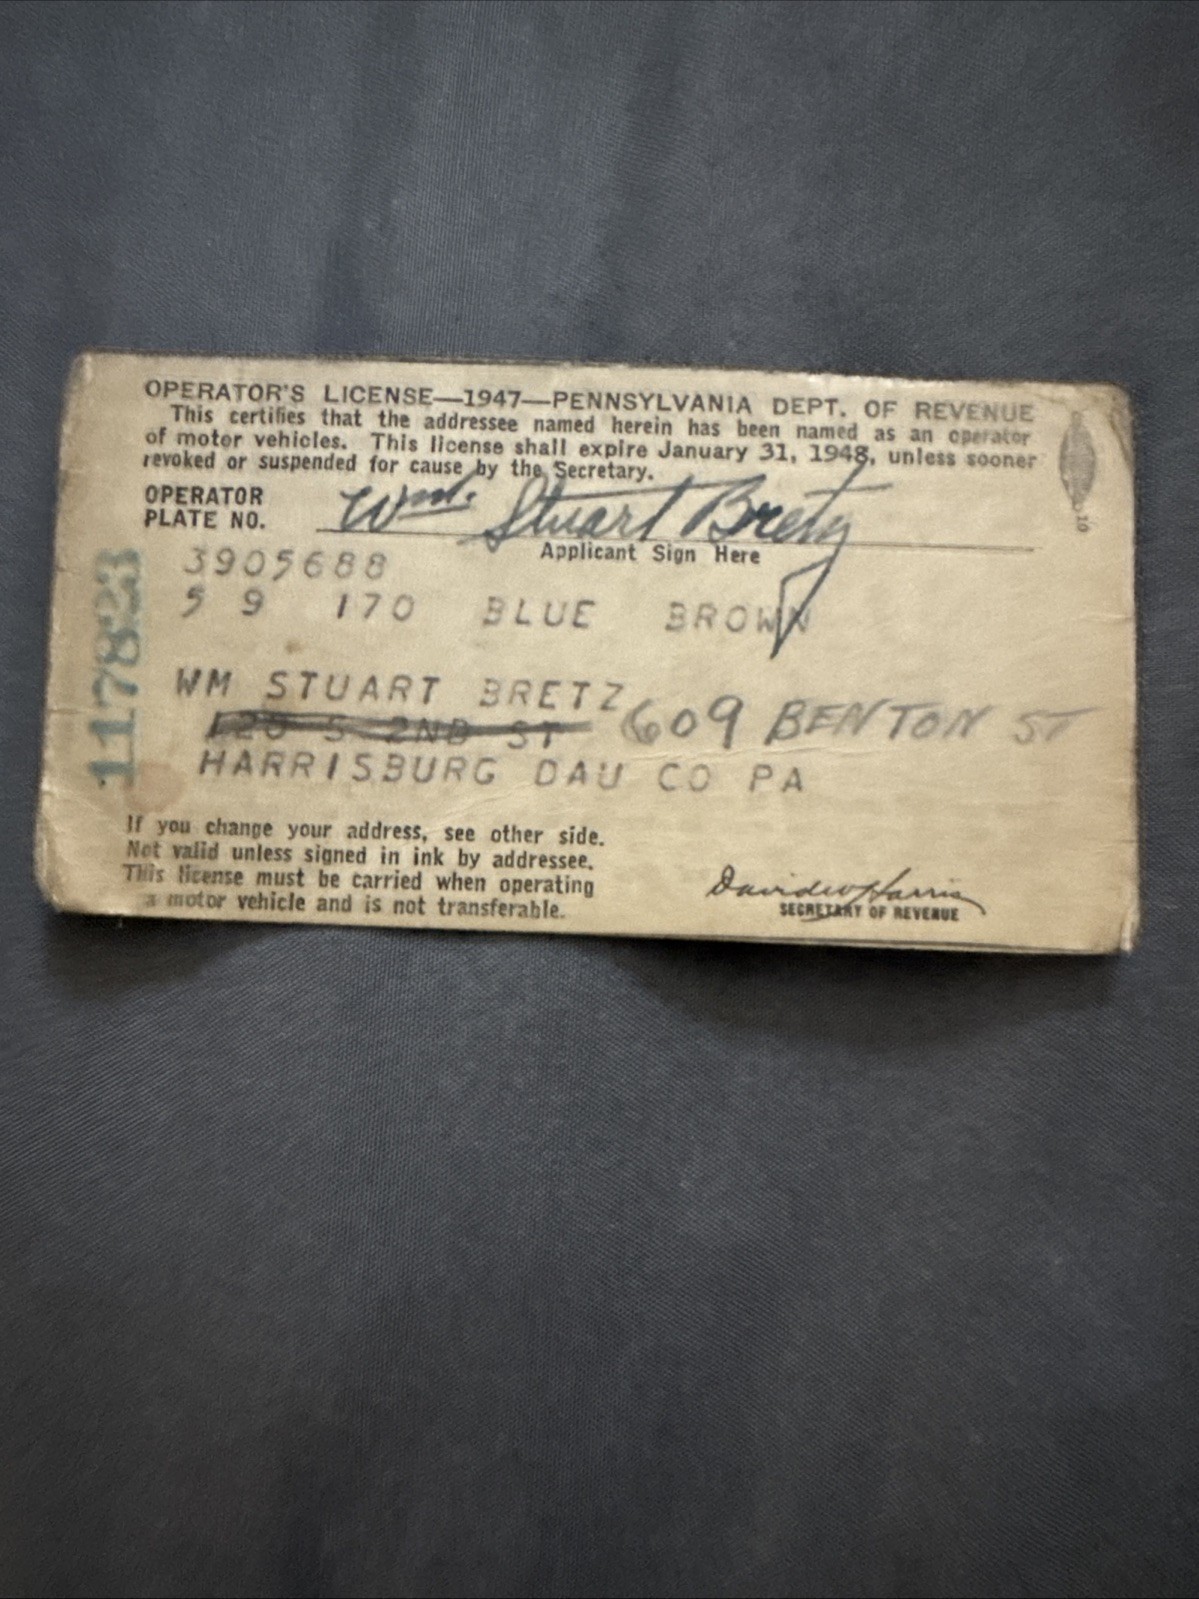 OPERATOR'S LICENSE—1947—PENNSYLVANIA DEPT. OF REVENUE
This certifies that the addressee named herein has been named as an operator
of motor vehicles. This license shall expire January 31, 1948, unless sooner
revoked or suspended for cause by the Secretary.
OPERATOR
PLATE NO.
Wm. Stuart Bretz
Applicant Sign Here
3905688
5 9 170 BLUE BROWN
WM STUART BRETZ
120 S 2ND ST 609 BENTON ST
HARRISBURG DAU CO PA
If you change your address, see other side.
Not valid unless signed in ink by addressee.
This license must be carried when operating
a motor vehicle and is not transferable.
David W Harris
SECRETARY OF REVENUE
117823
10